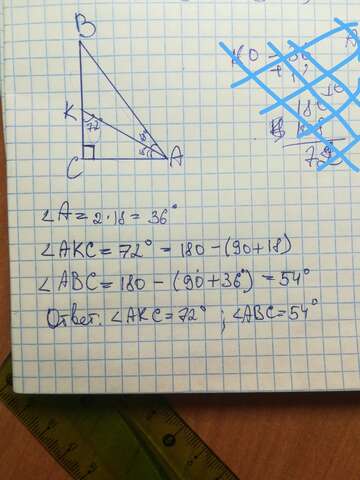 B
K 72
C A
∠A = 2·18 = 36°
∠AKC = 72° = 180 - (90+18)
∠ABC = 180 - (90+36°) = 54°
Ответ: ∠AKC = 72° ; ∠ABC = 54°